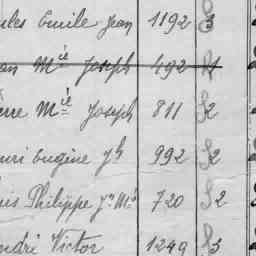 ules Emile Jean 1192 3
an Mie Joseph 492
erre Mie Joseph 811 S2
enri Eugène Jh 992 S2
uis Philippe Jn Mie 720 S2
ndré Victor 1249 S3